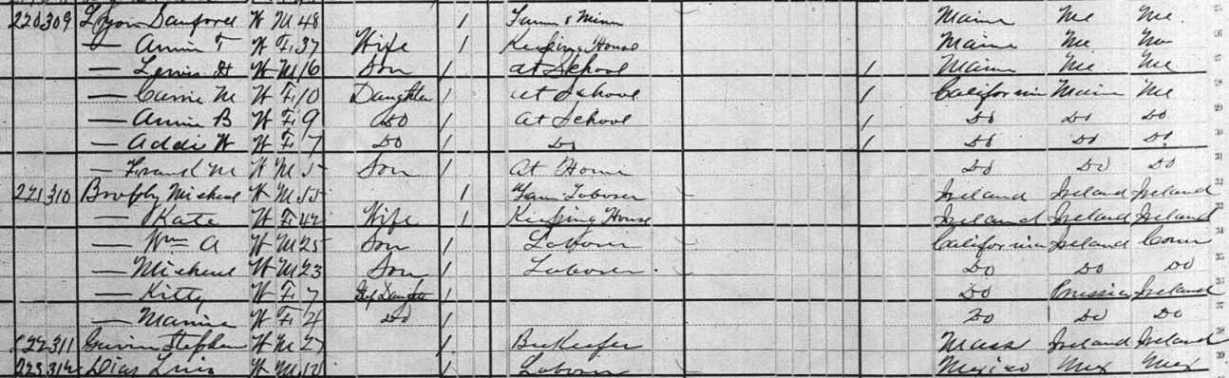 220 309 Lyon Sanford W M 48 1 Maine Me Me
— Annie T W F 37 Wife 1 Keeping House Maine Me Me
— Lewis H W M 16 Son 1 at School 1 Maine Me Me
— Carrie M W F 10 Daughter 1 at School 1 California Maine Me
— Annie B W F 9 Do 1 at School 1 Do Do Do
— Addie W F 7 Do 1 Do 1 Do Do Do
— Frank M W M 5 Son 1 At Home Do Do Do
221 310 Michael W M 55 1 Farm Laborer Ireland Ireland Ireland
— Kate W F 42 Wife 1 Keeping House Ireland Ireland Ireland
— Wm A W M 25 Son 1 Laborer California Ireland Conn
— Michael W M 23 Son 1 Laborer Do Do Do
— Kitty W F 7 Step Daughter 1 Do Prussia Ireland
— Mamie W F 4 Do 1 Do Do Do
222 311 Stephen W M 27 1 Bee Keeper Mass Ireland Ireland
223 312 Dias Luis W M 1 Laborer Mexico Mex Mex